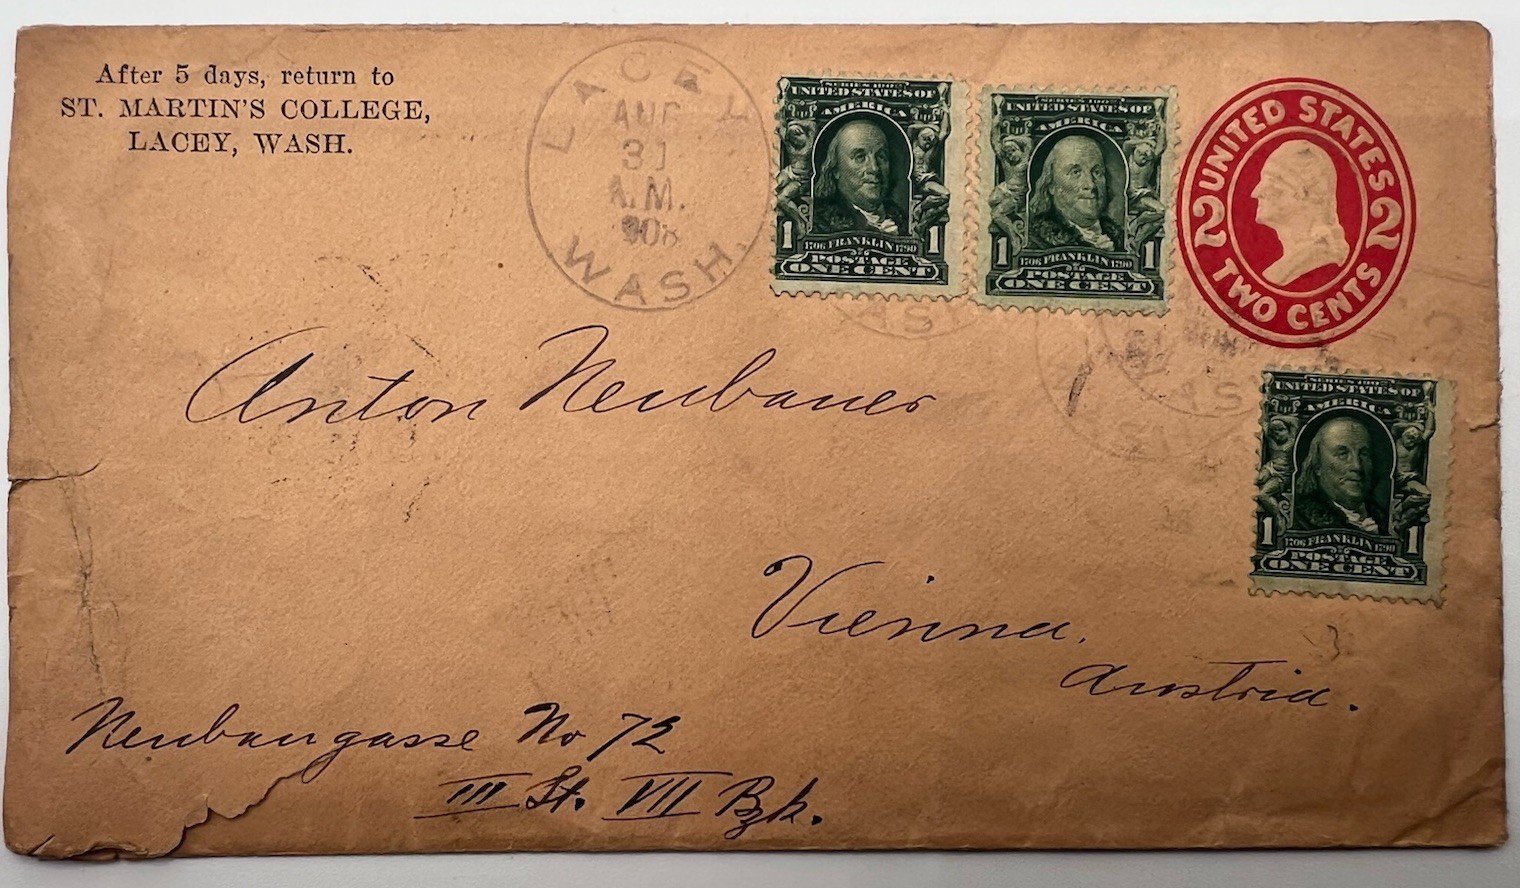 After 5 days, return to
ST. MARTIN'S COLLEGE,
LACEY, WASH.
LACEY
AUG
31
A.M.
1908
WASH.
SERIES 1902
UNITED STATES OF
AMERICA
1706 FRANKLIN 1790
1 1
POSTAGE
ONE CENT
SERIES 1902
UNITED STATES OF
AMERICA
1706 FRANKLIN 1790
1 1
POSTAGE
ONE CENT
UNITED STATES
2 2
TWO CENTS
SERIES 1902
UNITED STATES OF
AMERICA
1706 FRANKLIN 1790
1 1
POSTAGE
ONE CENT
Anton Neubauer
Vienna,
Austria.
Neubaugasse No 72
III St. VII Bzk.